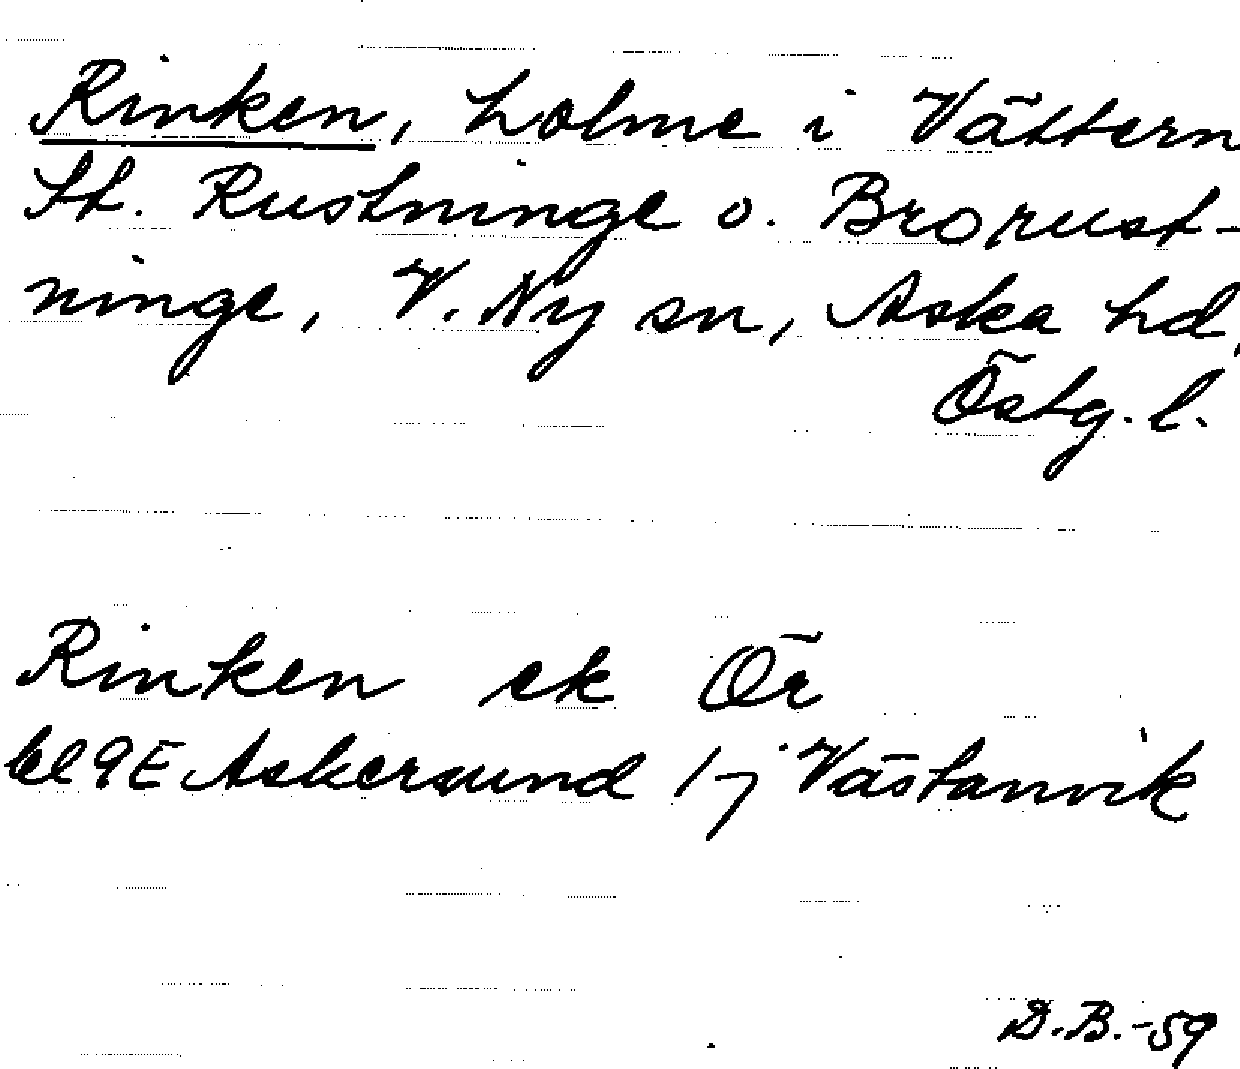 Rinken, holme i Vättern
St. Rustninge o. Brorust-
ninge, V. Ny sn, Aska hd,
Östg. l.
Rinken ek Ör
bl 9E Askersund 17j Västanvik
D.B.-59